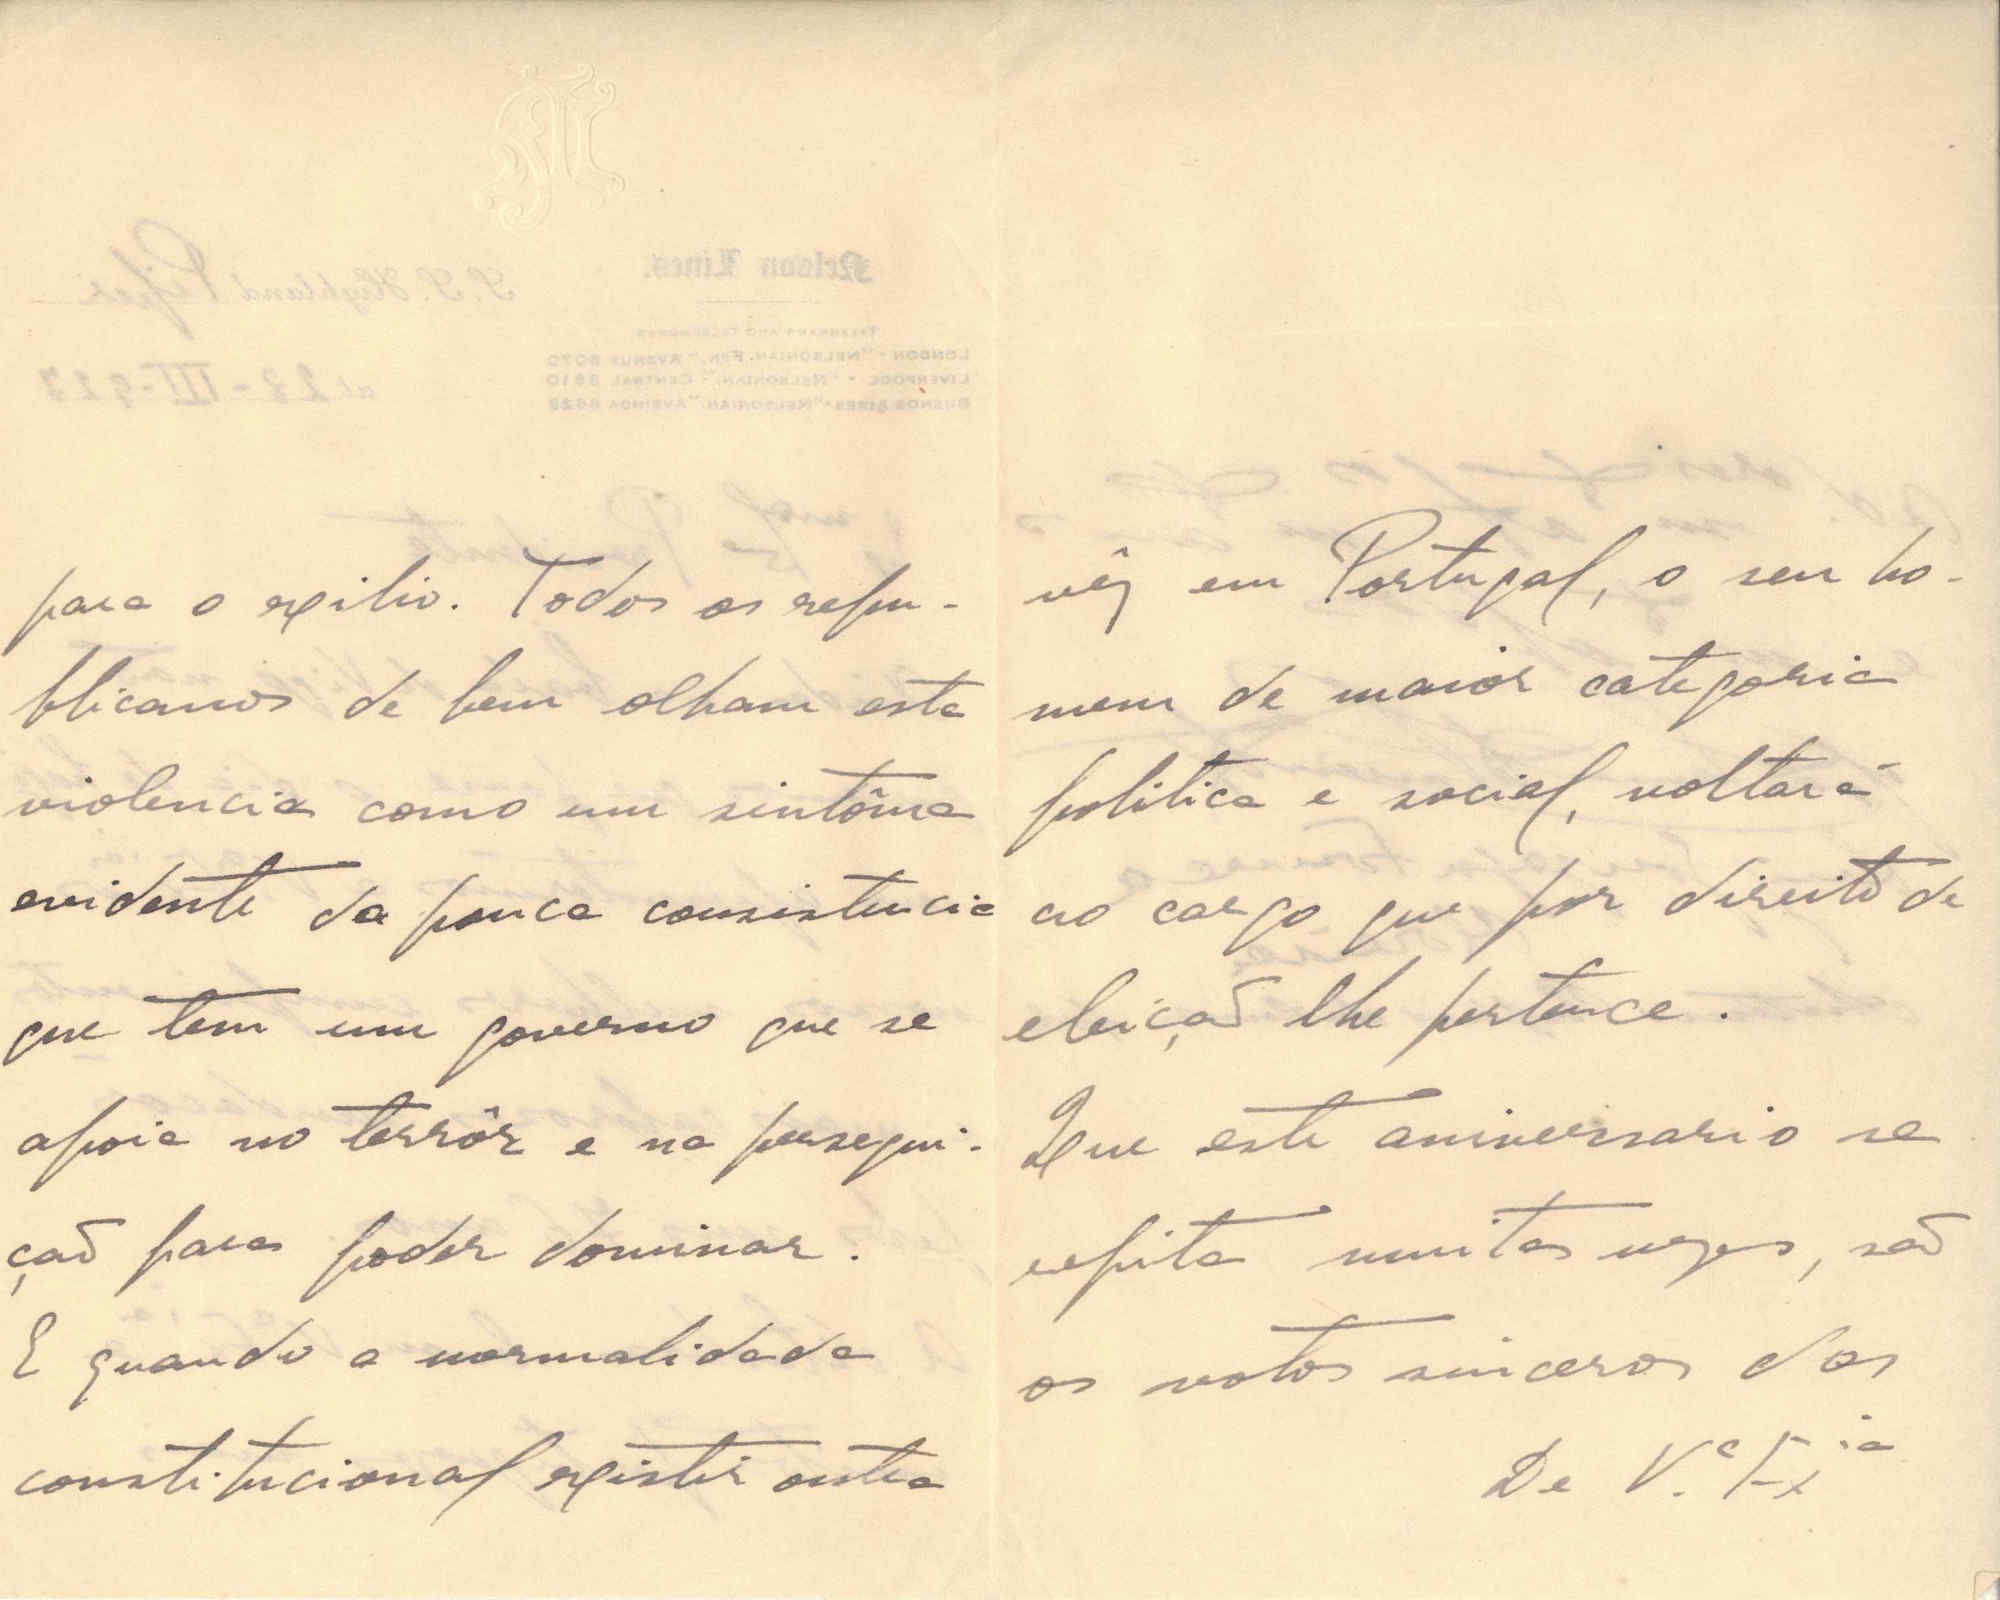 para o exilio. Todos os repu-
blicanos de bem olham esta
violencia como um sintôma
evidente da pouca consistencia
que tem um governo que se
apoia no terrôr e na persegui-
çaõ para poder dominar.
E quando a normalidade
constitucional existir outra
vêz em Portugal, o seu ho-
mem de maior categoria
politica e social, voltará
ao cargo que por direito de
eleiçaõ lhe pertence.
Que este aniversario se
repita muitas vezes, saõ
os votos sinceros dos
De V.ª Exia
Nelson Lines.
S. S. Highland
TELEGRAMS AND TELEPHONES
LONDON - "NELSONIAN, FEN," AVENUE 8070
LIVERPOOL - "NELSONIAN," CENTRAL 3810
BUENOS AIRES - "NELSONIAN," AVENIDA
28-III-927